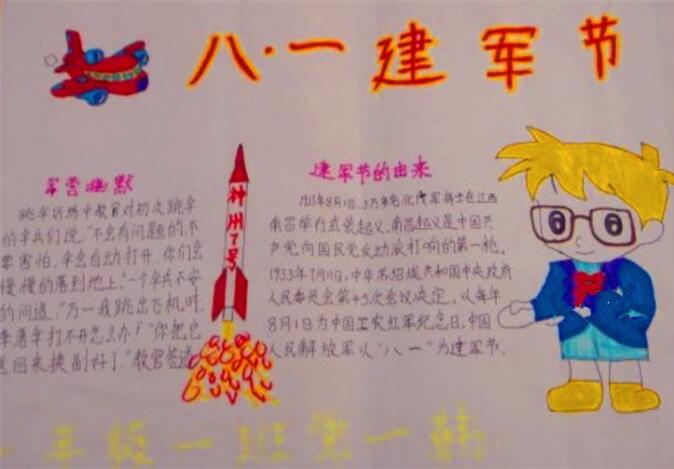 八·一建军节
军营幽默
跳伞训练中教官对初次跳伞
的伞兵们说,"不会有问题的不
要害怕,伞会自动打开,你们会
慢慢的落到地上。"一个伞兵不安
的问道,"万一我跳出飞机时,
降落伞打不开怎么办?""你把它
送回来换副好了。"教官答道
神州7号
建军节的由来
8月1日,3万多名北伐军将士在江西
南昌举行武装起义,南昌起义是中国共
产党向国民党反动派打响的第一枪。
1933年7月11日,中华苏维埃共和国中央政府
人民委员会第45次会议决定,以每年
8月1日为中国工农红军纪念日,中国
人民解放军以"八一"为建军节.
年级一班第一